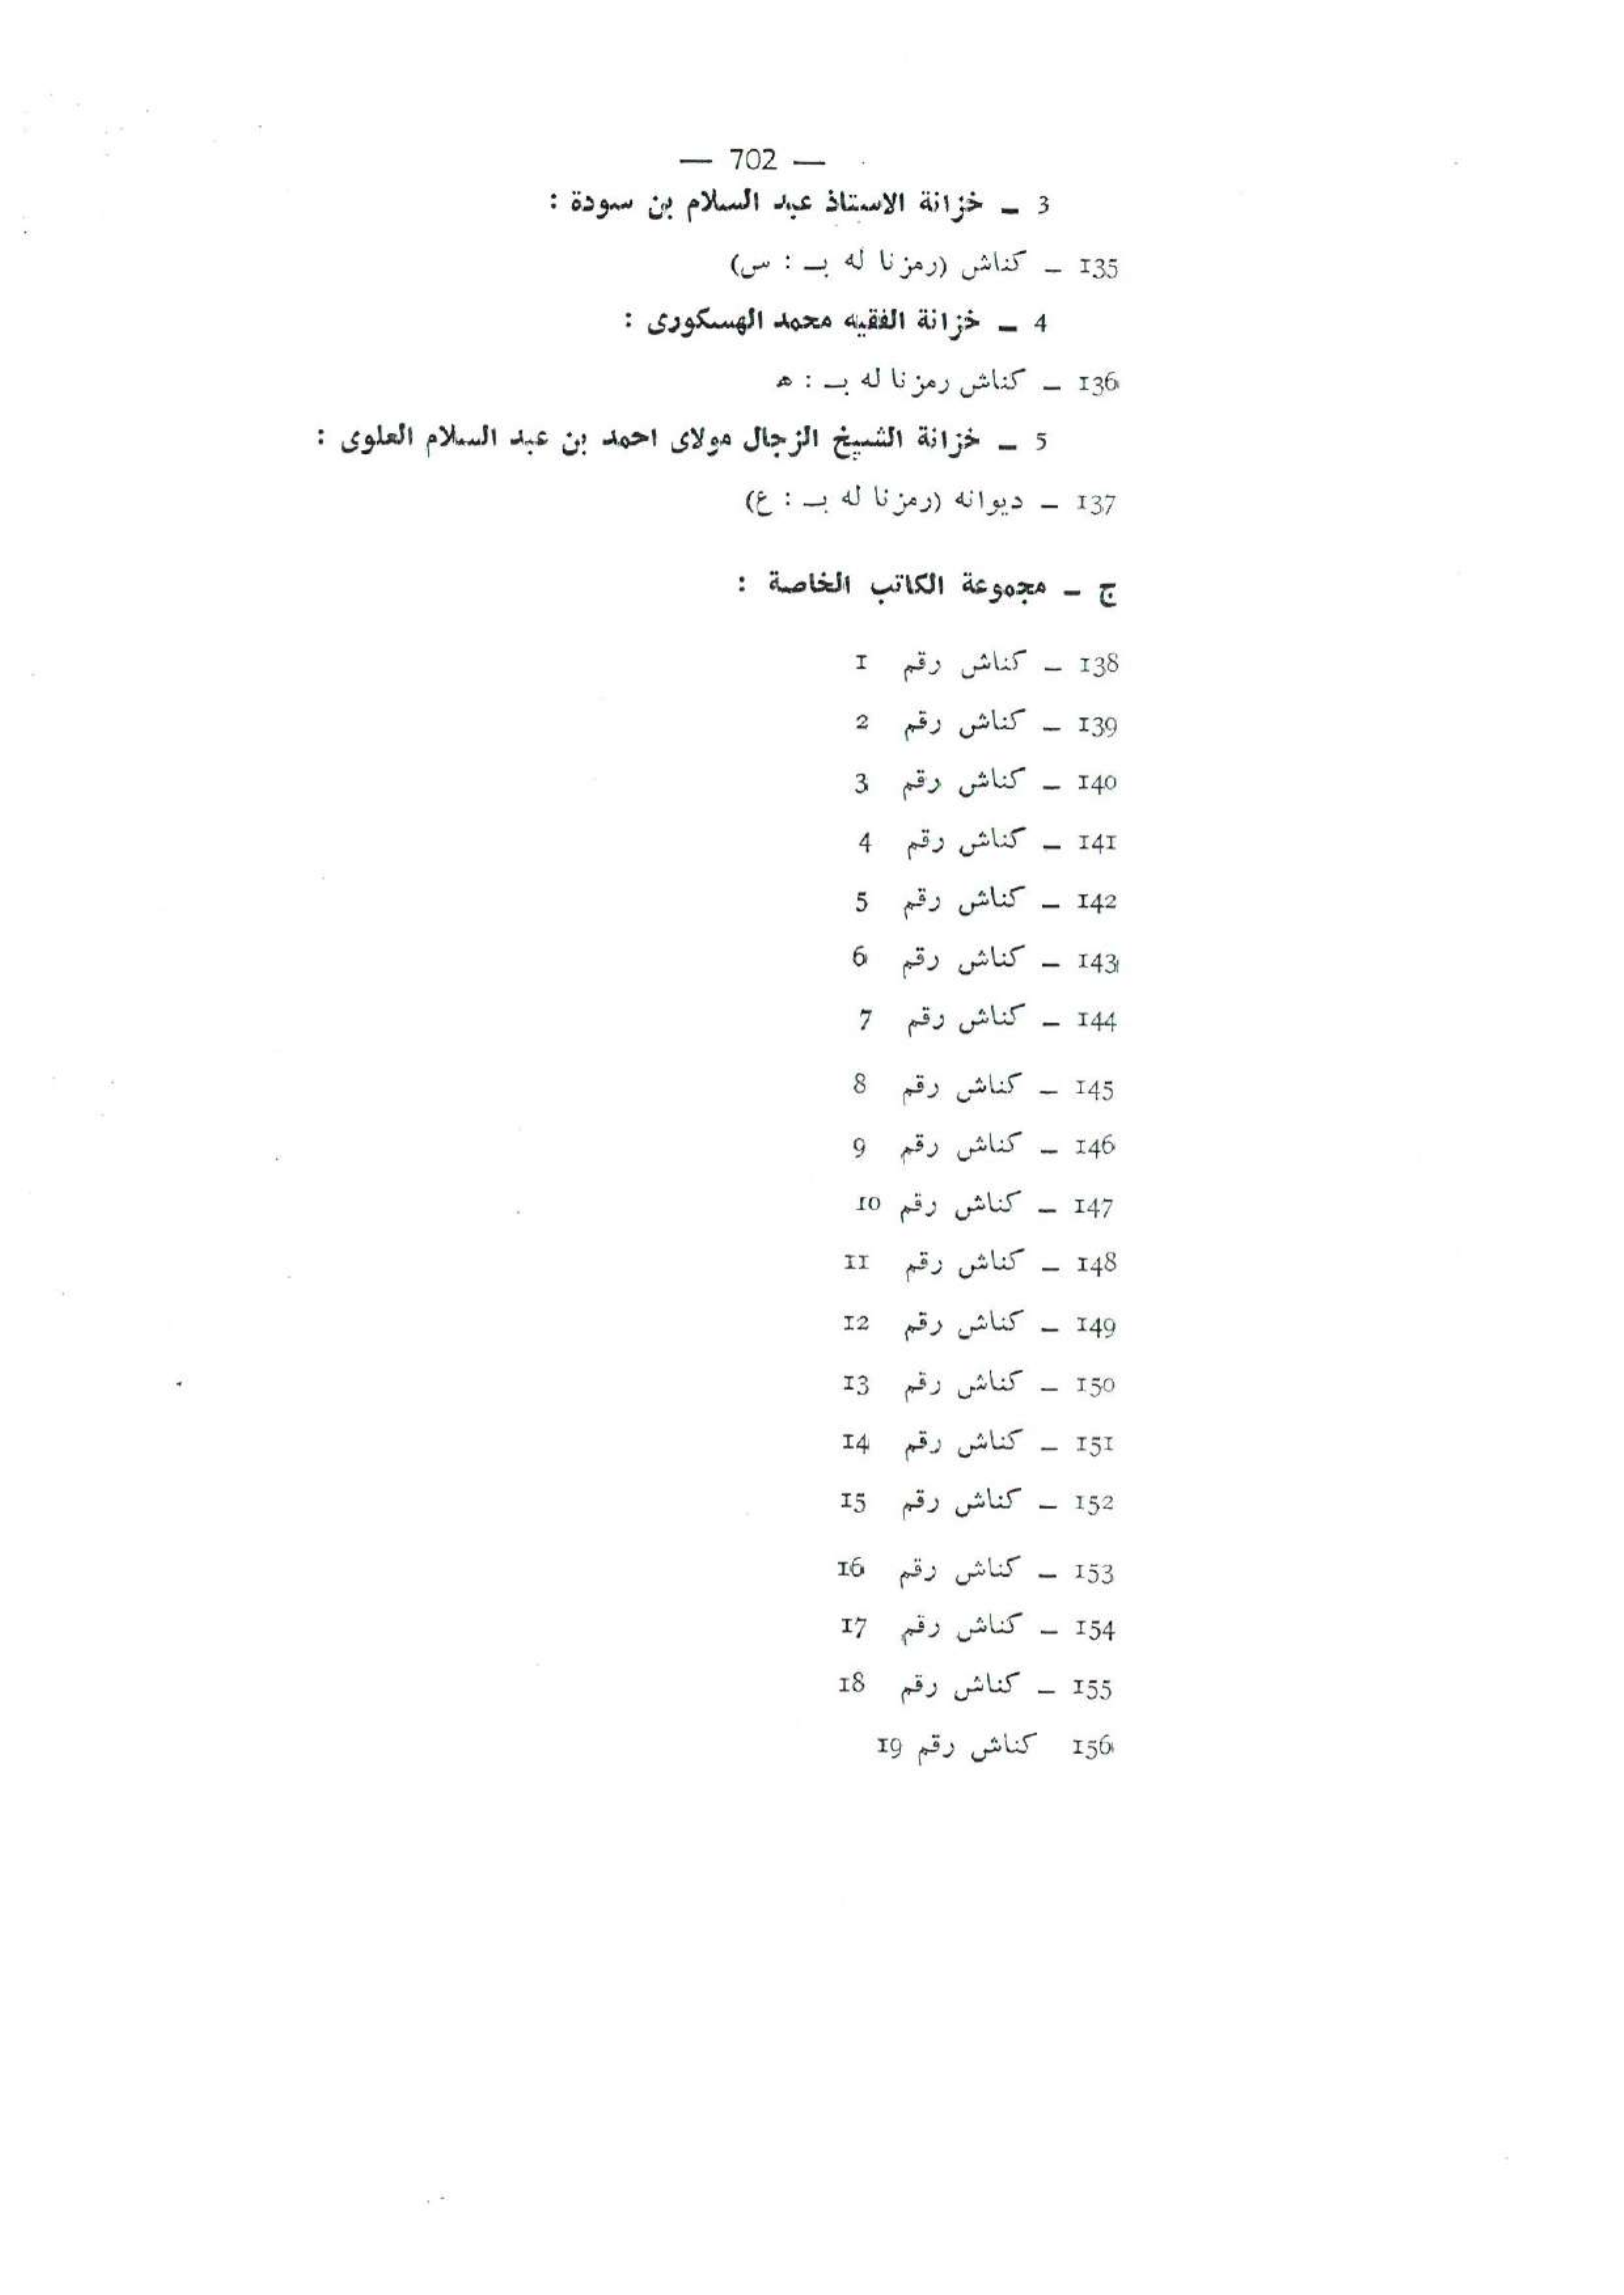 — 702 —
3 – خزانة الاستاذ عبد السلام بن سودة :
135 – كناش (رمزنا له بـ : س)
4 – خزانة الفقيه محمد الهسكورى :
136 – كناش رمزنا له بـ : ه
5 – خزانة الشيخ الزجال مولاى احمد بن عبد السلام العلوى :
137 – ديوانه (رمزنا له بـ : ع)
ج – مجموعة الكاتب الخاصة :
138 – كناش رقم 1
139 – كناش رقم 2
140 – كناش رقم 3
141 – كناش رقم 4
142 – كناش رقم 5
143 – كناش رقم 6
144 – كناش رقم 7
145 – كناش رقم 8
146 – كناش رقم 9
147 – كناش رقم 10
148 – كناش رقم 11
149 – كناش رقم 12
150 – كناش رقم 13
151 – كناش رقم 14
152 – كناش رقم 15
153 – كناش رقم 16
154 – كناش رقم 17
155 – كناش رقم 18
156 كناش رقم 19